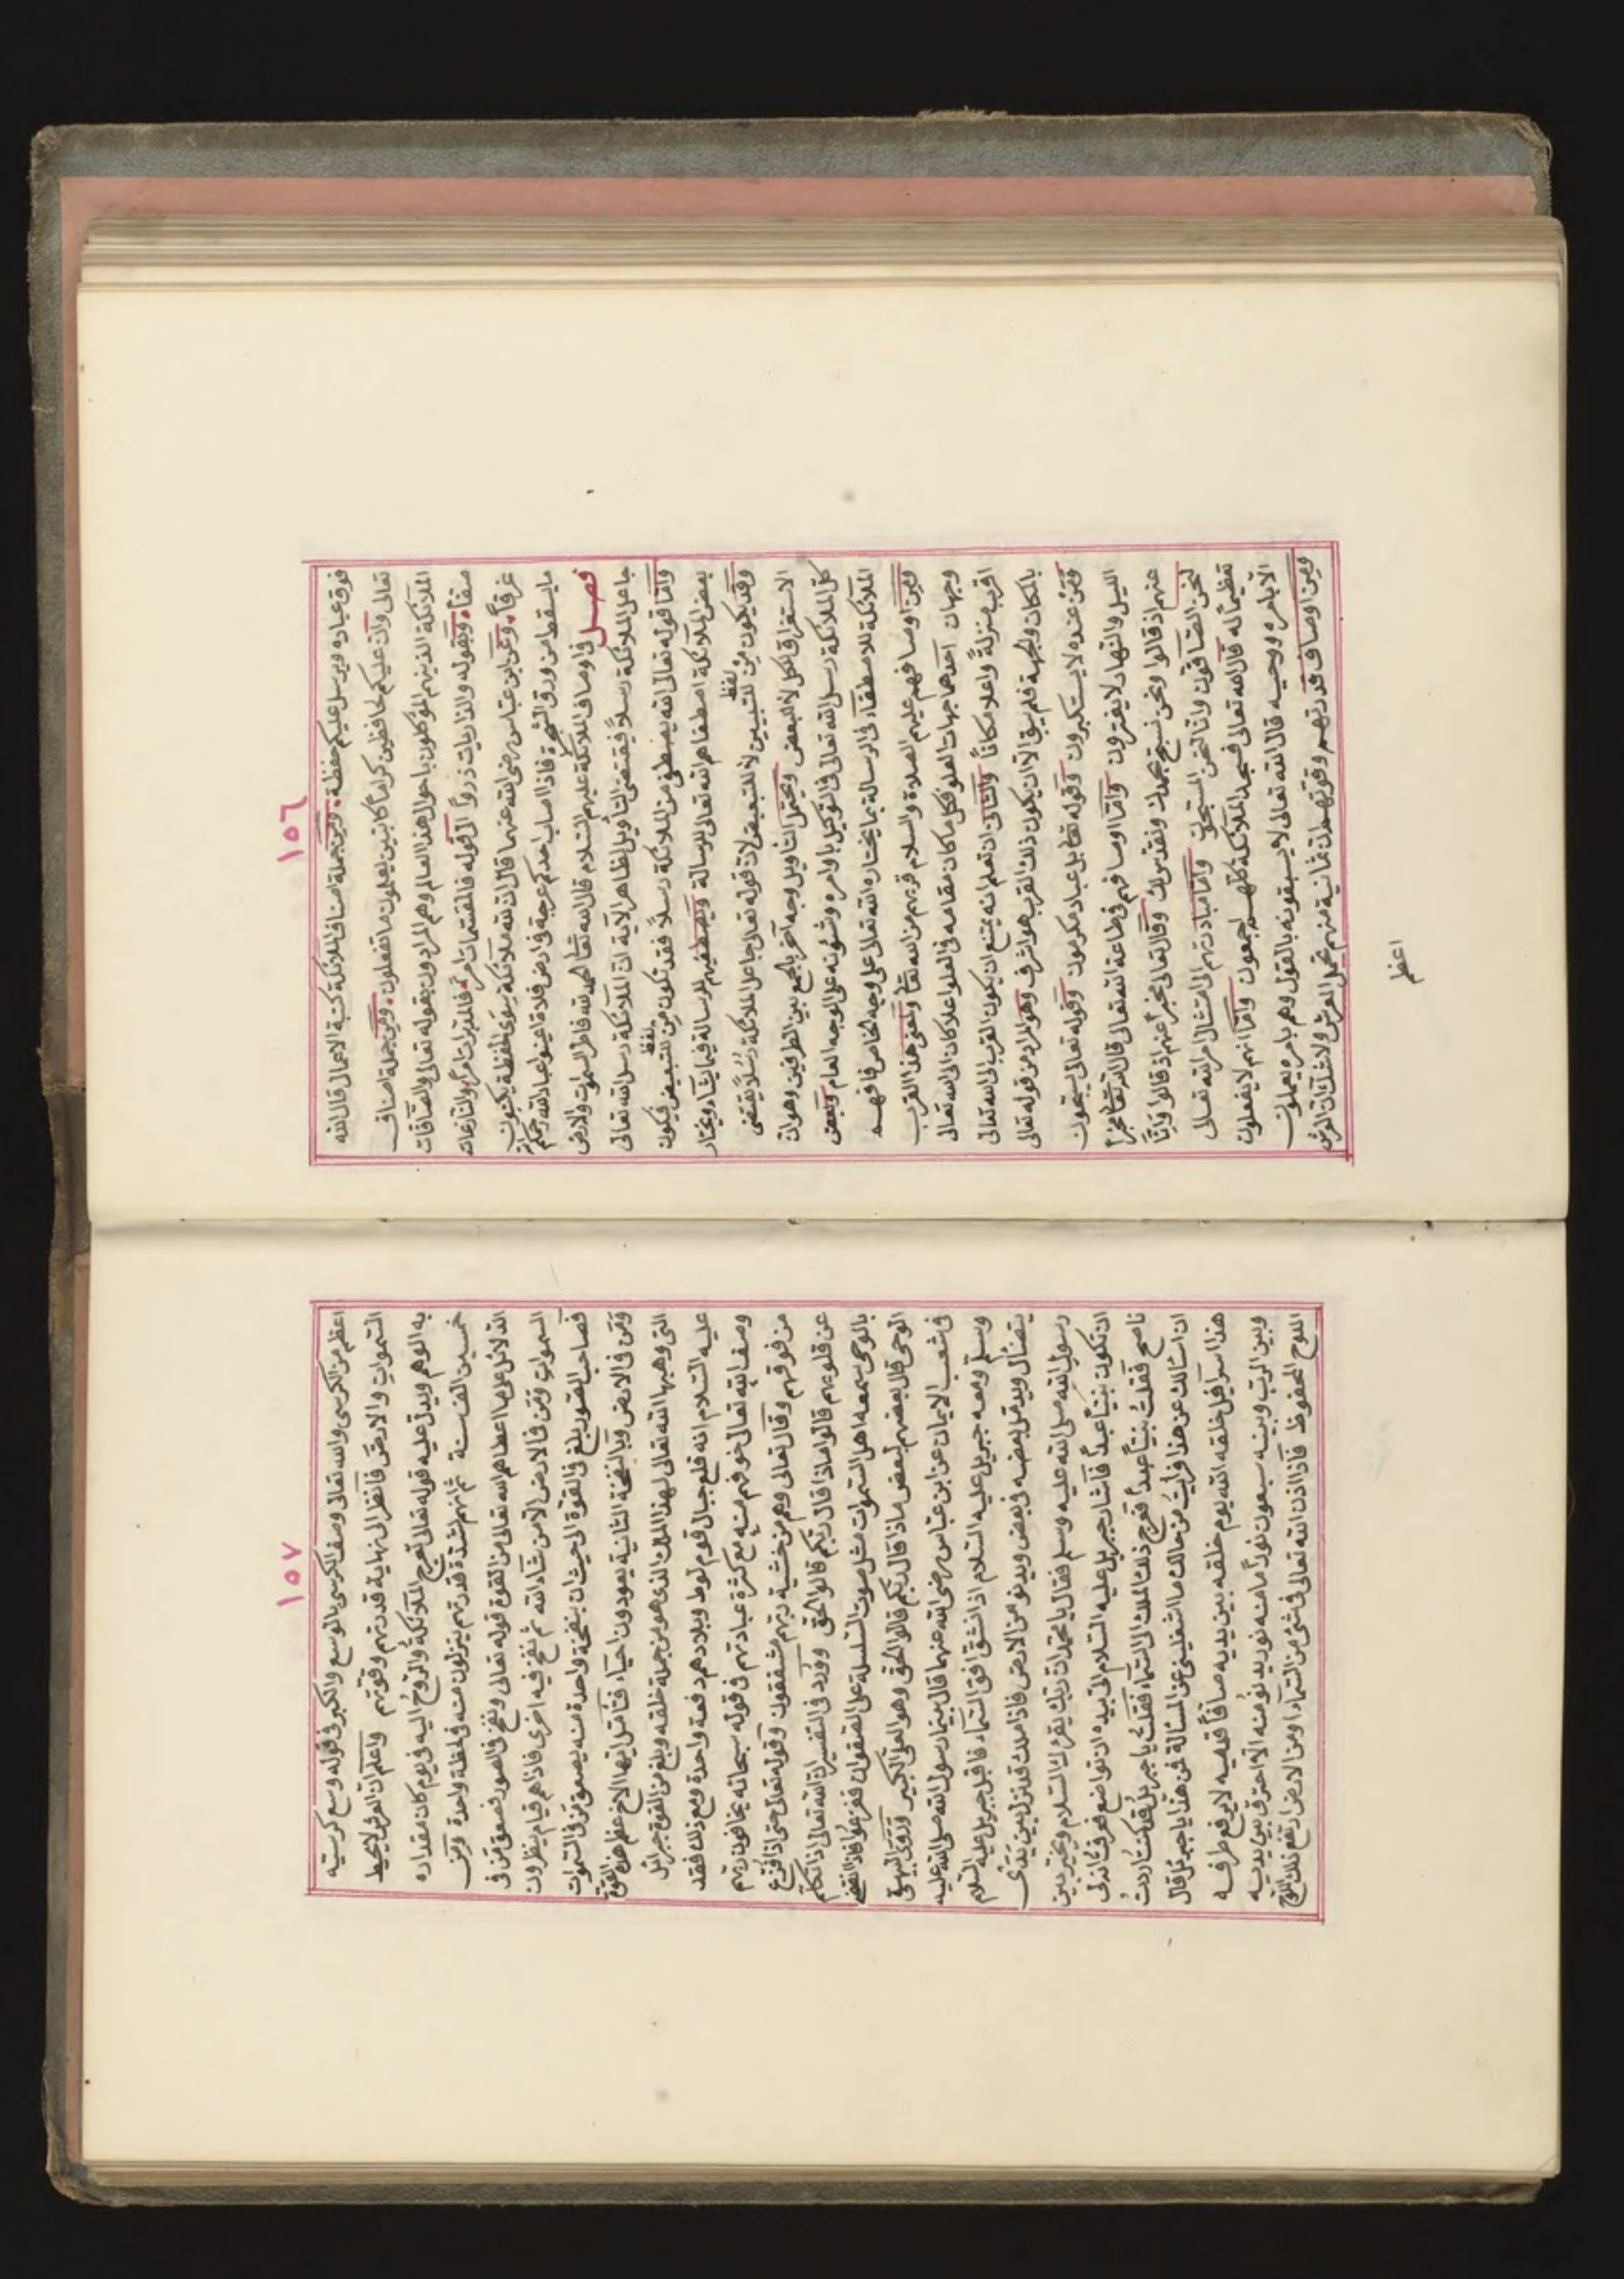 ١٥٦
فوق عباده ويرسل عليكم حفظة. ومن جملة اصناف الملائكة كتبة الاعمال قال الله
تعالى وان عليكم لحافظين كراما كاتبين يعلمون ما تفعلون. ومن جملة اصناف
الملائكة الذين هم المؤكلون باحوال هذا العالم وهم المرادون بقوله تعالى والصافات
صفا. وبقوله والذاريات ذروا الى قوله فالمقسمات امرا فالمدبرات امرا والنازعات
غرقا. وعن ابن عباس رضى الله عنهما قال ان لله ملائكة سوى الحفظة يكتبون
ما يسقط من ورق الشجر فاذا اصاب احدكم عرجة فى ارض فلاة اعينوا عباد الله رحمكم الله
فصل فى اوصاف الملائكة عليهم السلام قال الله تعا الحمد لله فاطر السموات والارض
جاعل الملائكة رسلا فيقتضى التأويل لظاهر الآية ان الملائكة رسل الله تعالى
واما قوله تعالى الله يصطفى من الملائكة رسلا فقد تكون لفظ من للتبعيض فيكون
بعض الملائكة اصطفاهم الله تعالى للرسالة ويصطفيهم للرسالة فيما يشاء ويختار
وقد يكون لفظ من للتبيين لا للتبعيض لان قوله تعالى جاعل الملائكة رسلا يقتضى
الاستغراق للكل لا للبعض ويحتمل التأويل وجه آخر بالجمع بين الطرفين وهو ان
كل الملائكة رسل الله تعالى فى التوكيل باوامره وشئونه على الوجه العام وبعض
الملائكة للاصطفاء فى الرسالة بما يختاره الله تعالى على وجه الخاص فافهم
ومن اوصافهم عليهم الصلاة والسلام قربهم من الله تعا ومعنى هذا القرب
وجهان احدهما جهات العلو فكل ما كان مقامه فى العلو اعلا كان الى الله تعالى
اقرب منزلة واعلا مكانا والثانى ان تعلم انه يمتنع ان يكون القرب الى الله تعالى
بالمكان والجهة فلم يبق الا ان يكون ذلك القرب هو الشرف وهو المراد من قوله تعالى
ومن عنده لا يستكبرون وقوله تعا بل عباد مكرمون وقوله تعالى يسبحون
الليل والنهار لا يفترون واما اوصافهم فى طاعة الله تعالى قال الله تعا مخبرا
عنهم اذ قالوا ونحن نسبح بحمدك ونقدس لك وقال تعالى مخبرا عنهم اذ قالوا وانا
لنحن الصافون وانا لنحن المسبحون واما مبادرتهم الى امتثال امر الله تعالى
تعظيما له قال الله تعالى فسجد الملائكة كلهم اجمعون واما انهم لا يفعلون
الا بامره ووحيه قال الله تعالى لا يسبقونه بالقول وهم بامره يعملون
ومن اوصاف قدرتهم وقوتهم ان ثمانية منهم تحمل العرش ولا شك ان العرش
اعظم
١٥٧
اعظم من الكرسى والله تعالى وصف الكرسى بالوسع والكبر فى قوله وسع كرسيه
السموات والارض فانظر الى نهاية قدرتهم وقوتهم واعلم ان العرش لا يحيط
به الوهم ويدل عليه قوله تعالى تعرج الملائكة والروح اليه فى يوم كان مقداره
خمسين الف سنة ثم انهم لشدة قدرتهم ينزلون منه فى لحظة واحدة ومن
الدلائل على ما اعطاهم الله تعالى من القوة قوله تعالى ونفخ فى الصور فصعق من فى
السموات ومن فى الارض الا من شاء الله ثم نفخ فيه اخرى فاذا هم قيام ينظرون
فصاحب الصور يبلغ فى القوة الى حيث ان بنفخة واحدة منه يصعق من فى السموات
ومن فى الارض وبالنفخة الثانية يعودون احياء فتأمل ايها الاخ عظم هذه القوة
التى وهبها الله تعالى لهذا الملك الذى هو من جملة خلقه وبلغ من القوة جبرائل
عليه السلام انه قلع جبال قوم لوط وبلادهم دفعة واحدة ومع ذلك فقد
وصف الله تعالى خوفهم منه مع كثرة عبادتهم فى قوله سبحانه يخافون ربهم
من فوقهم وقال تعالى وهم من خشية ربهم مشفقون وقوله تعالى حتى اذا فزع
عن قلوبهم قالوا ماذا قال ربكم قالوا الحق وورد فى التفسير ان الله تعالى اذا تكلم
بالوحى سمعه اهل السموات مثل صوت السلسلة على الصفوان ففزعوا فاذا انقضى
الوحى قال بعضهم لبعض ماذا قال ربكم قالوا الحق وهو العلى الكبير وروى البيهقى
فى شعب الايمان عن ابن عباس رضى الله عنهما قال بينما رسول الله صلى الله عليه
وسلم ومعه جبريل عليه السلام اذ انشق افق السماء فاقبل جبريل عليه السلام
يتضأل ويدخل بعضه فى بعض ويدنو من الارض فاذا ملك قد نزل بين يدى
رسول الله صلى الله عليه وسلم فقال يا محمد ان ربك يقرئك السلام ويخيرك بين
ان تكون نبيا عبدا فاشار جبريل عليه السلام الى بيده ان تواضع فعرفت انه لى
ناصح فقلت نبيا عبدا فعرج ذلك الملك الى السماء فقلت يا جبريل قد كنت اردت
ان اسألك عن هذا فرأيت من حالك ما اشغلنى عن المسألة فمن هذا يا جبريل قال
هذا اسرافيل خلقه الله يوم خلقه بين يديه صافا قدميه لا يرفع طرفه
وبين الرب وبينه سبعون نورا ما منه نور يدنو منه الا احترق بين يديه
اللوح المحفوظ فاذا اذن الله تعالى فى شئ من السماء او من الارض ارتفع ذلك اللوح